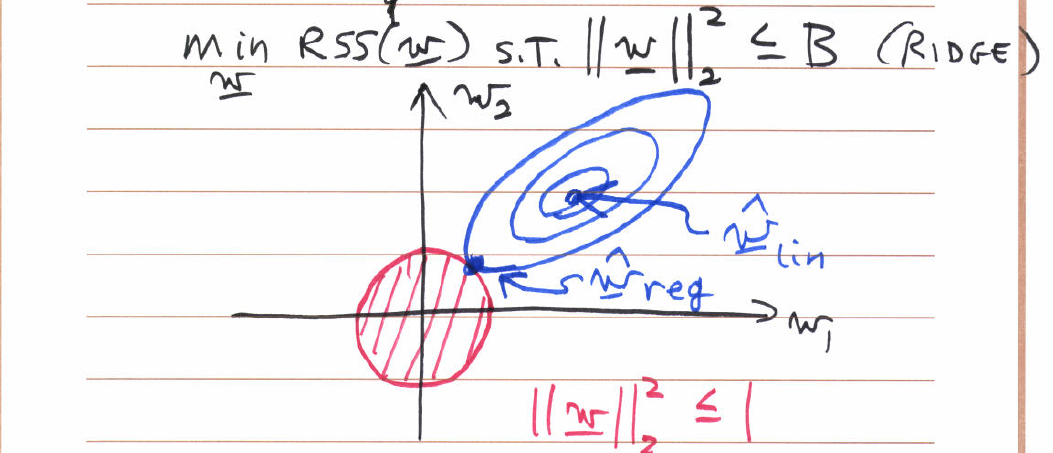 min RSS(w) S.T. ||w||₂² ≤ B (RIDGE)
w
w₂
ŵ lin
ŵ reg
w₁
||w||₂² ≤ 1